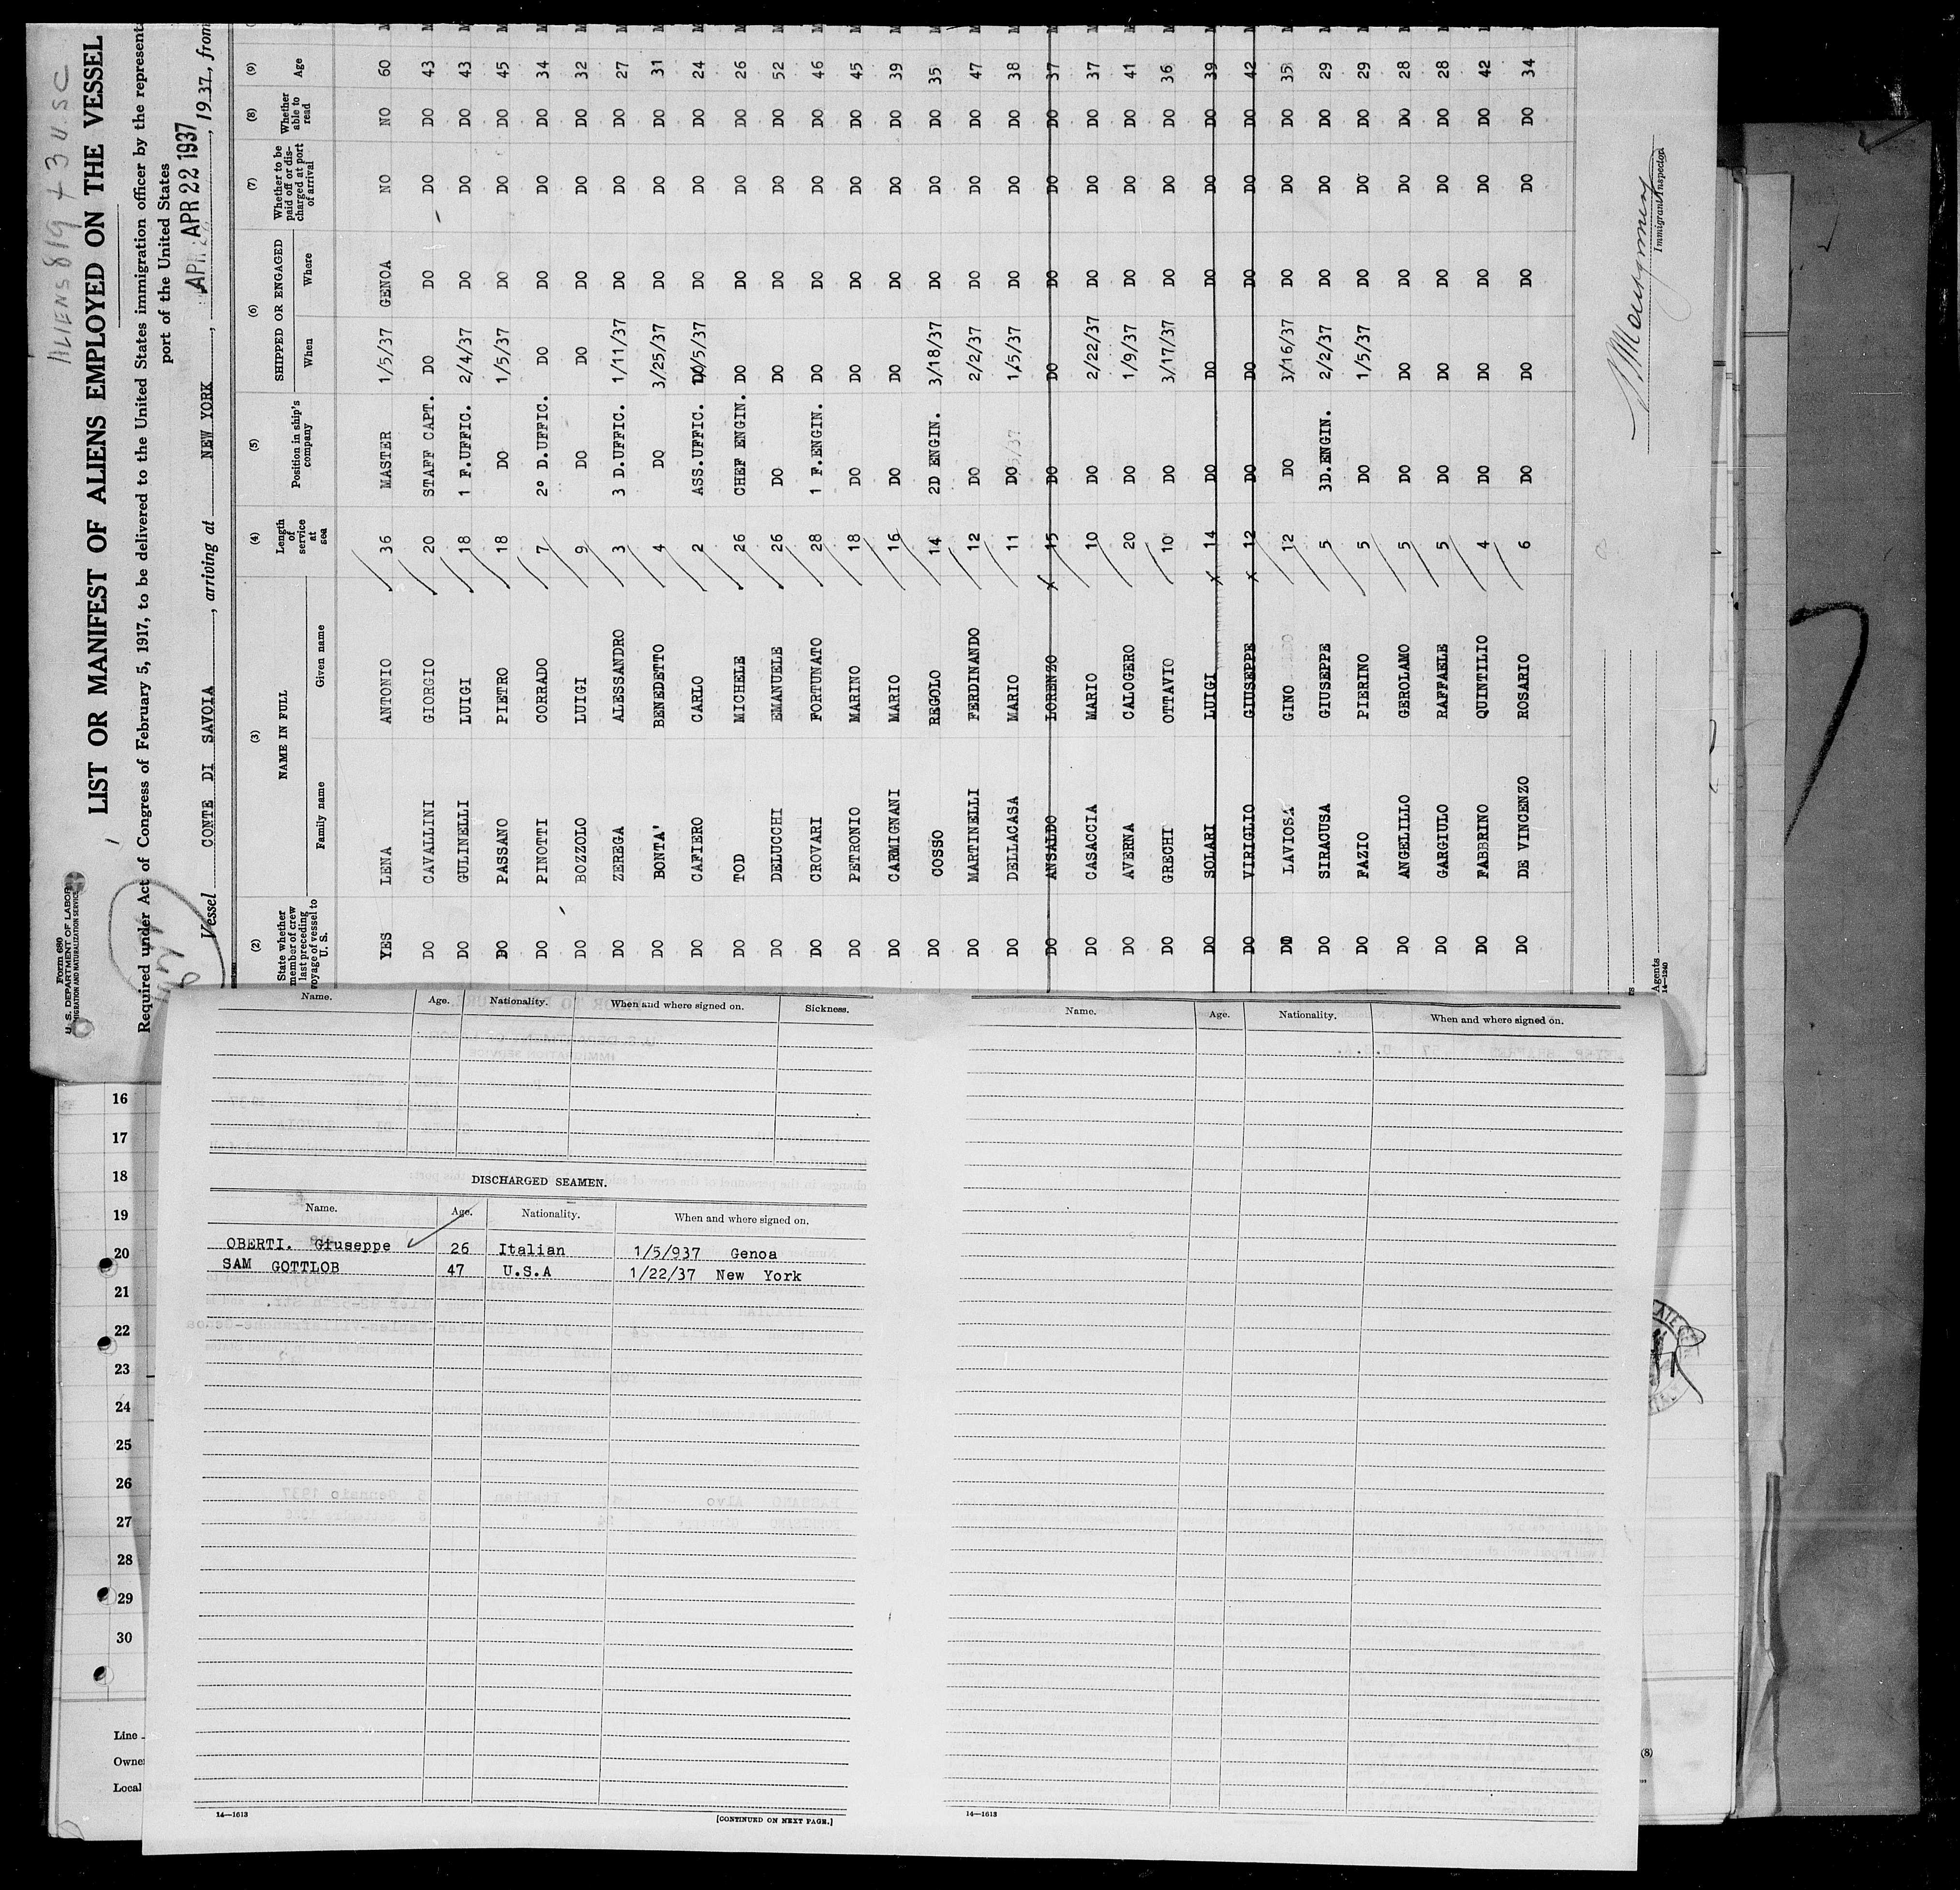 ALIENS 819 + 3 U.SC
Form 680
U. S. DEPARTMENT OF LABOR
IMMIGRATION AND NATURALIZATION SERVICE
LIST OR MANIFEST OF ALIENS EMPLOYED ON THE VESSEL
Required under Act of Congress of February 5, 1917, to be delivered to the United States immigration officer by the represent
port of the United States
APR 22 1937
Vessel CONTE DI SAVOIA, arriving at NEW YORK, 1937, from
(2) (3) (4) (5) (6) (7) (8) (9)
State whether member of crew last preceding voyage of vessel to U. S.
NAME IN FULL
Family name Given name
Length of service at sea
Position in ship's company
SHIPPED OR ENGAGED
When Where
Whether to be paid off or discharged at port of arrival
Whether able to read
Age
YES LENA ANTONIO 36 MASTER 1/5/37 GENOA NO NO 60
DO CAVALLINI GIORGIO 20 STAFF CAPT. DO DO DO DO 43
DO GULINELLI LUIGI 18 1 F.UFFIC. 2/4/37 DO DO DO 43
DO PASSANO PIETRO 18 DO 1/5/37 DO DO DO 45
DO PINOTTI CORRADO 7 2º D.UFFIC. DO DO DO DO 34
DO BOZZOLO LUIGI 9 DO DO DO DO DO 32
DO ZEREGA ALESSANDRO 3 3 D.UFFIC. 1/11/37 DO DO DO 27
DO BONTA' BENEDETTO 4 DO 3/25/37 DO DO DO 31
DO CAFIERO CARLO 2 ASS.UFFIC. 1/5/37 DO DO DO 24
DO TOD MICHELE 26 CHEF ENGIN. DO DO DO DO 26
DO DELUCCHI EMANUELE 26 DO DO DO DO DO 52
DO CROVARI FORTUNATO 28 1 F.ENGIN. DO DO DO DO 46
DO PETRONIO MARINO 18 DO DO DO DO DO 45
DO CARMIGNANI MARIO 16 DO DO DO DO DO 39
DO COSSO REGOLO 14 2D ENGIN. 3/18/37 DO DO DO 35
DO MARTINELLI FERDINANDO 12 DO 2/2/37 DO DO DO 47
DO DELLACASA MARIO 11 DO 1/5/37 DO DO DO 38
DO ANSALDO LORENZO 15 DO DO DO DO DO 37
DO CASACCIA MARIO 10 DO 2/22/37 DO DO DO 37
DO AVERNA CALOGERO 20 DO 1/9/37 DO DO DO 41
DO GRECHI OTTAVIO 10 DO 3/17/37 DO DO DO 36
DO SOLARI LUIGI 14 DO DO DO DO DO 39
DO VIRIGLIO GIUSEPPE 12 DO DO DO DO DO 42
DO LAVIOSA GINO 12 DO 3/16/37 DO DO DO 35
DO SIRACUSA GIUSEPPE 5 3D.ENGIN. 2/2/37 DO DO DO 29
DO FAZIO PIERINO 5 DO 1/5/37 DO DO DO 29
DO ANGELILLO GEROLAMO 5 DO DO DO DO DO 28
DO GARGIULO RAFFAELE 5 DO DO DO DO DO 28
DO FABBRINO QUINTILIO 4 DO DO DO DO DO 42
DO DE VINCENZO ROSARIO 6 DO DO DO DO DO 34
Immigrant Inspector.
Agents
14—1240
Name. Age. Nationality. When and where signed on. Sickness.
DISCHARGED SEAMEN.
Name. Age. Nationality. When and where signed on.
OBERTI. Giuseppe 26 Italian 1/5/937 Genoa
SAM GOTTLOB 47 U.S.A 1/22/37 New York
14—1613
[CONTINUED ON NEXT PAGE.]
Name. Age. Nationality. When and where signed on.
14—1613
16
17
18
19
20
21
22
23
24
25
26
27
28
29
30
Line
Owne
Local
(8)